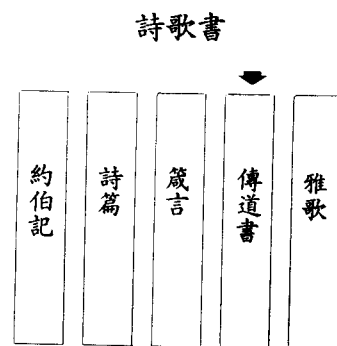 詩歌書
約伯記
詩篇
箴言
傳道書
雅歌